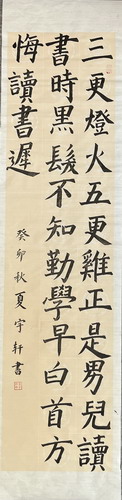 三更燈火五更雞正是男兒讀
書時黑髮不知勤學早白首方
悔讀書遲
癸卯秋夏宇軒書